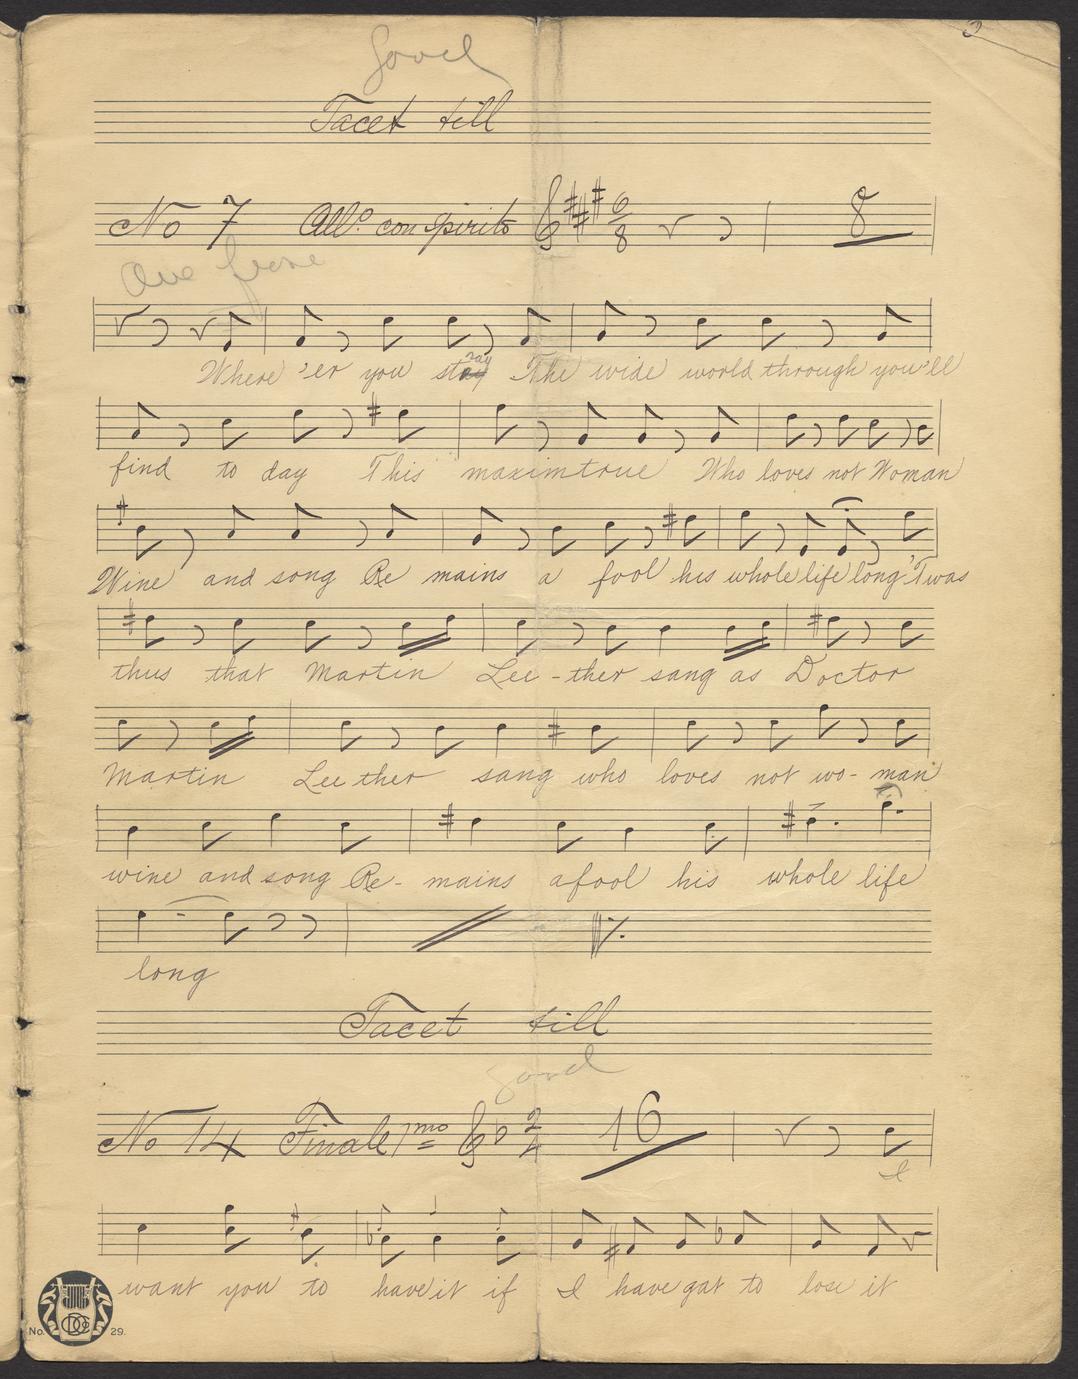 3
Good
Tacet till
No 7 All.º con Spirito 6/8 8
One
Where 'er you stay ray The wide world through you'll
find to day This maxim true Who loves not Woman
Wine and song Re mains a fool his whole life long 'Twas
thus that Martin Lee - ther sang as Doctor
Martin Lee ther sang who loves not wo - man
wine and song Re - mains a fool his whole life
long
Tacet till
Good
No 14 Finale 1mo 2/4 16
I
want you to have it if I have got to lose it
No. 29.